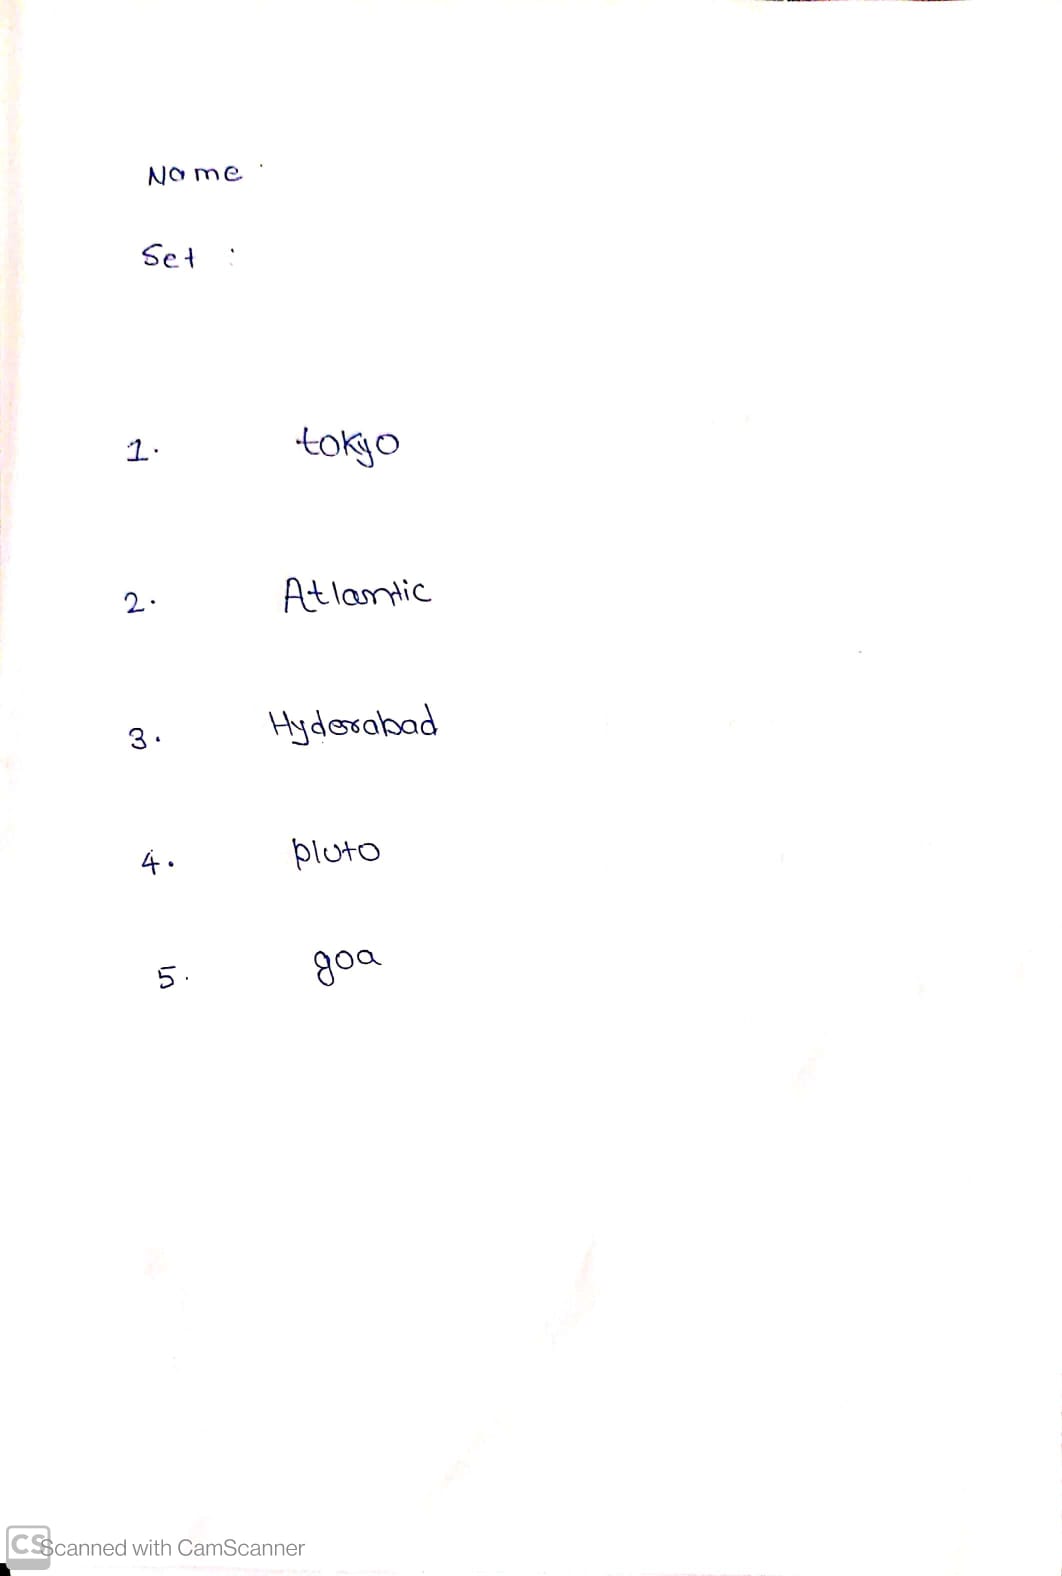 Name :
Set :
1. tokyo
2. Atlantic
3. Hyderabad
4. pluto
5. goa
CS Scanned with CamScanner